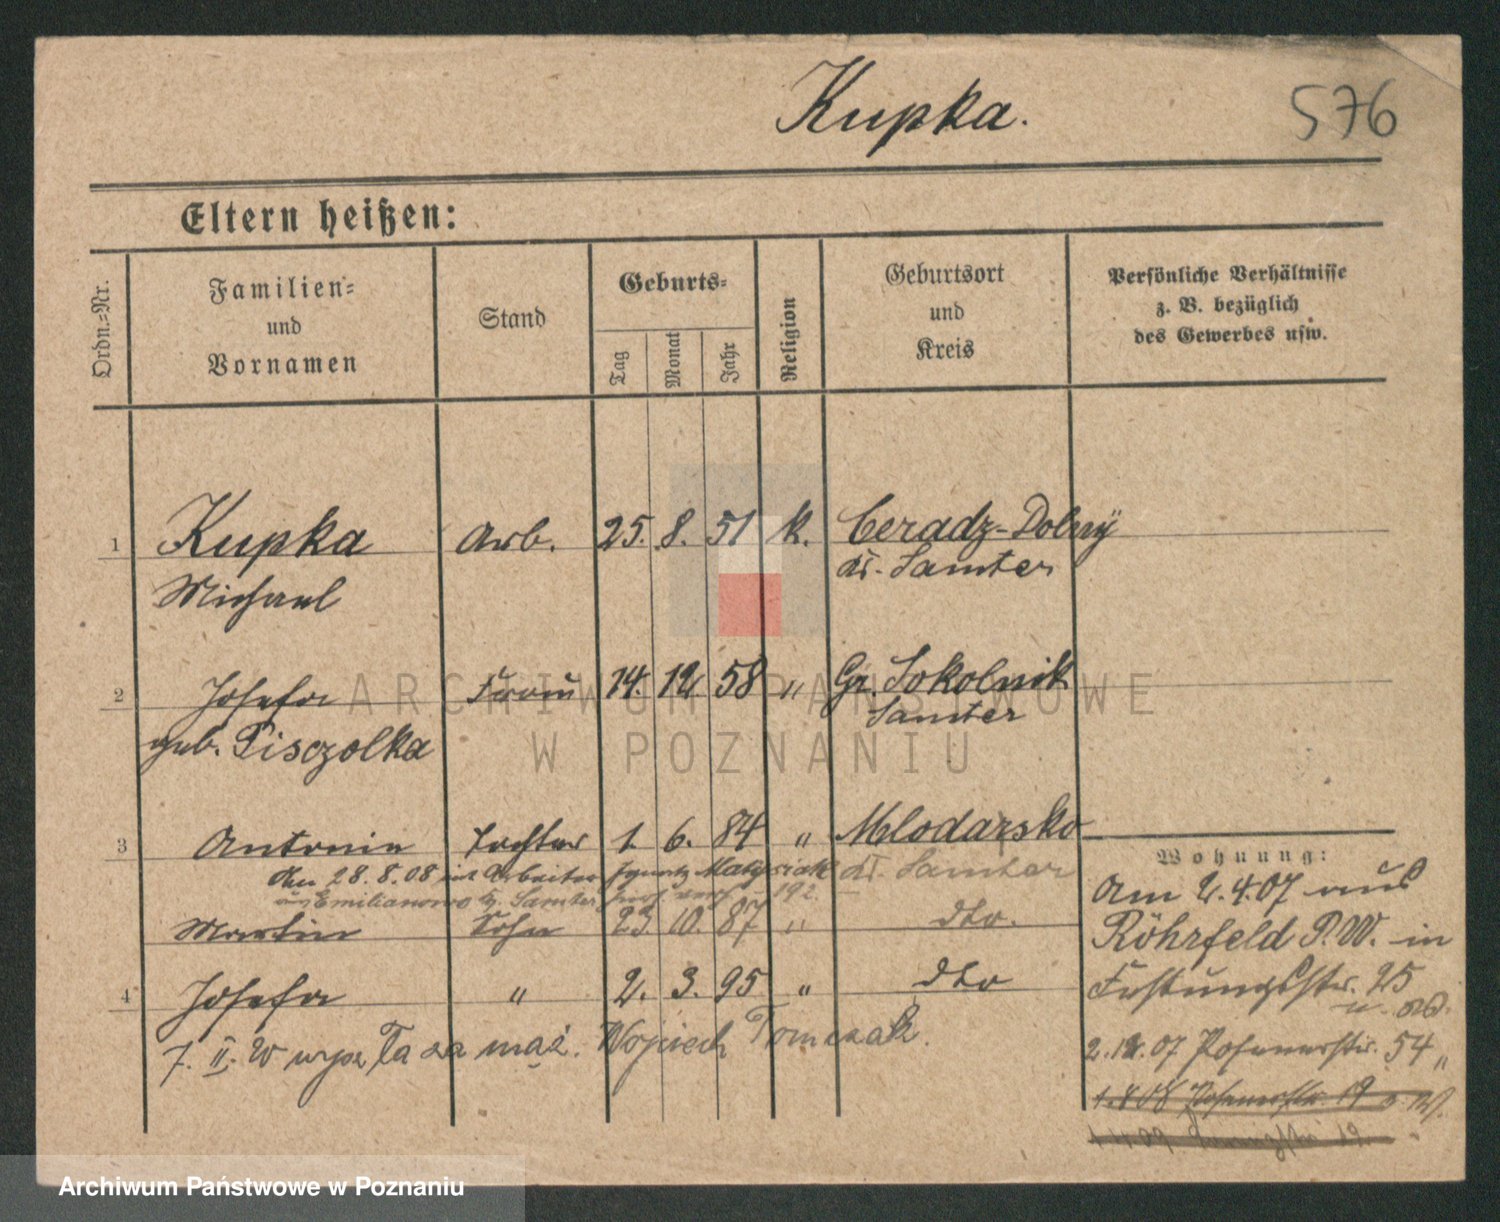 Kupka.
576
Eltern heißen:
Ordn.-Nr.
Familien- und Vornamen
Stand
Geburts-
Tag
Monat
Jahr
Religion
Geburtsort und Kreis
Persönliche Verhältnisse
z. B. bezüglich
des Gewerbes usw.
1 Kupka Arb. 25. 8. 51 k. Ceradz-Dolny
Michael Kr. Samter
2 Josefa Frau 14. 12 58 " Gr. Sokolnik
geb. Pisczolka Samter
3 Antonie Tochter 1. 6. 84 " Mlodasko
den 28.8.08 mit Arbeiter Ignatz Matysiak Kr. Samter
aus Emilianowo Kr. Samter 192
Martin Sohn 23. 10. 87 " dto.
4 Josefa " 2. 3. 95 " dto
7. II. W wyszła za mąż. Wojciech Tomczak.
Wohnung:
Am 2.4.07 aus
Röhrfeld P.W. in
Festungsstr. 25
2.12.07 Posenerstr. 54
1.4.08 Posenerstr. 19
1.4.09 19.
ARCHIWUM PAŃSTWOWE
W POZNANIU
Archiwum Państwowe w Poznaniu